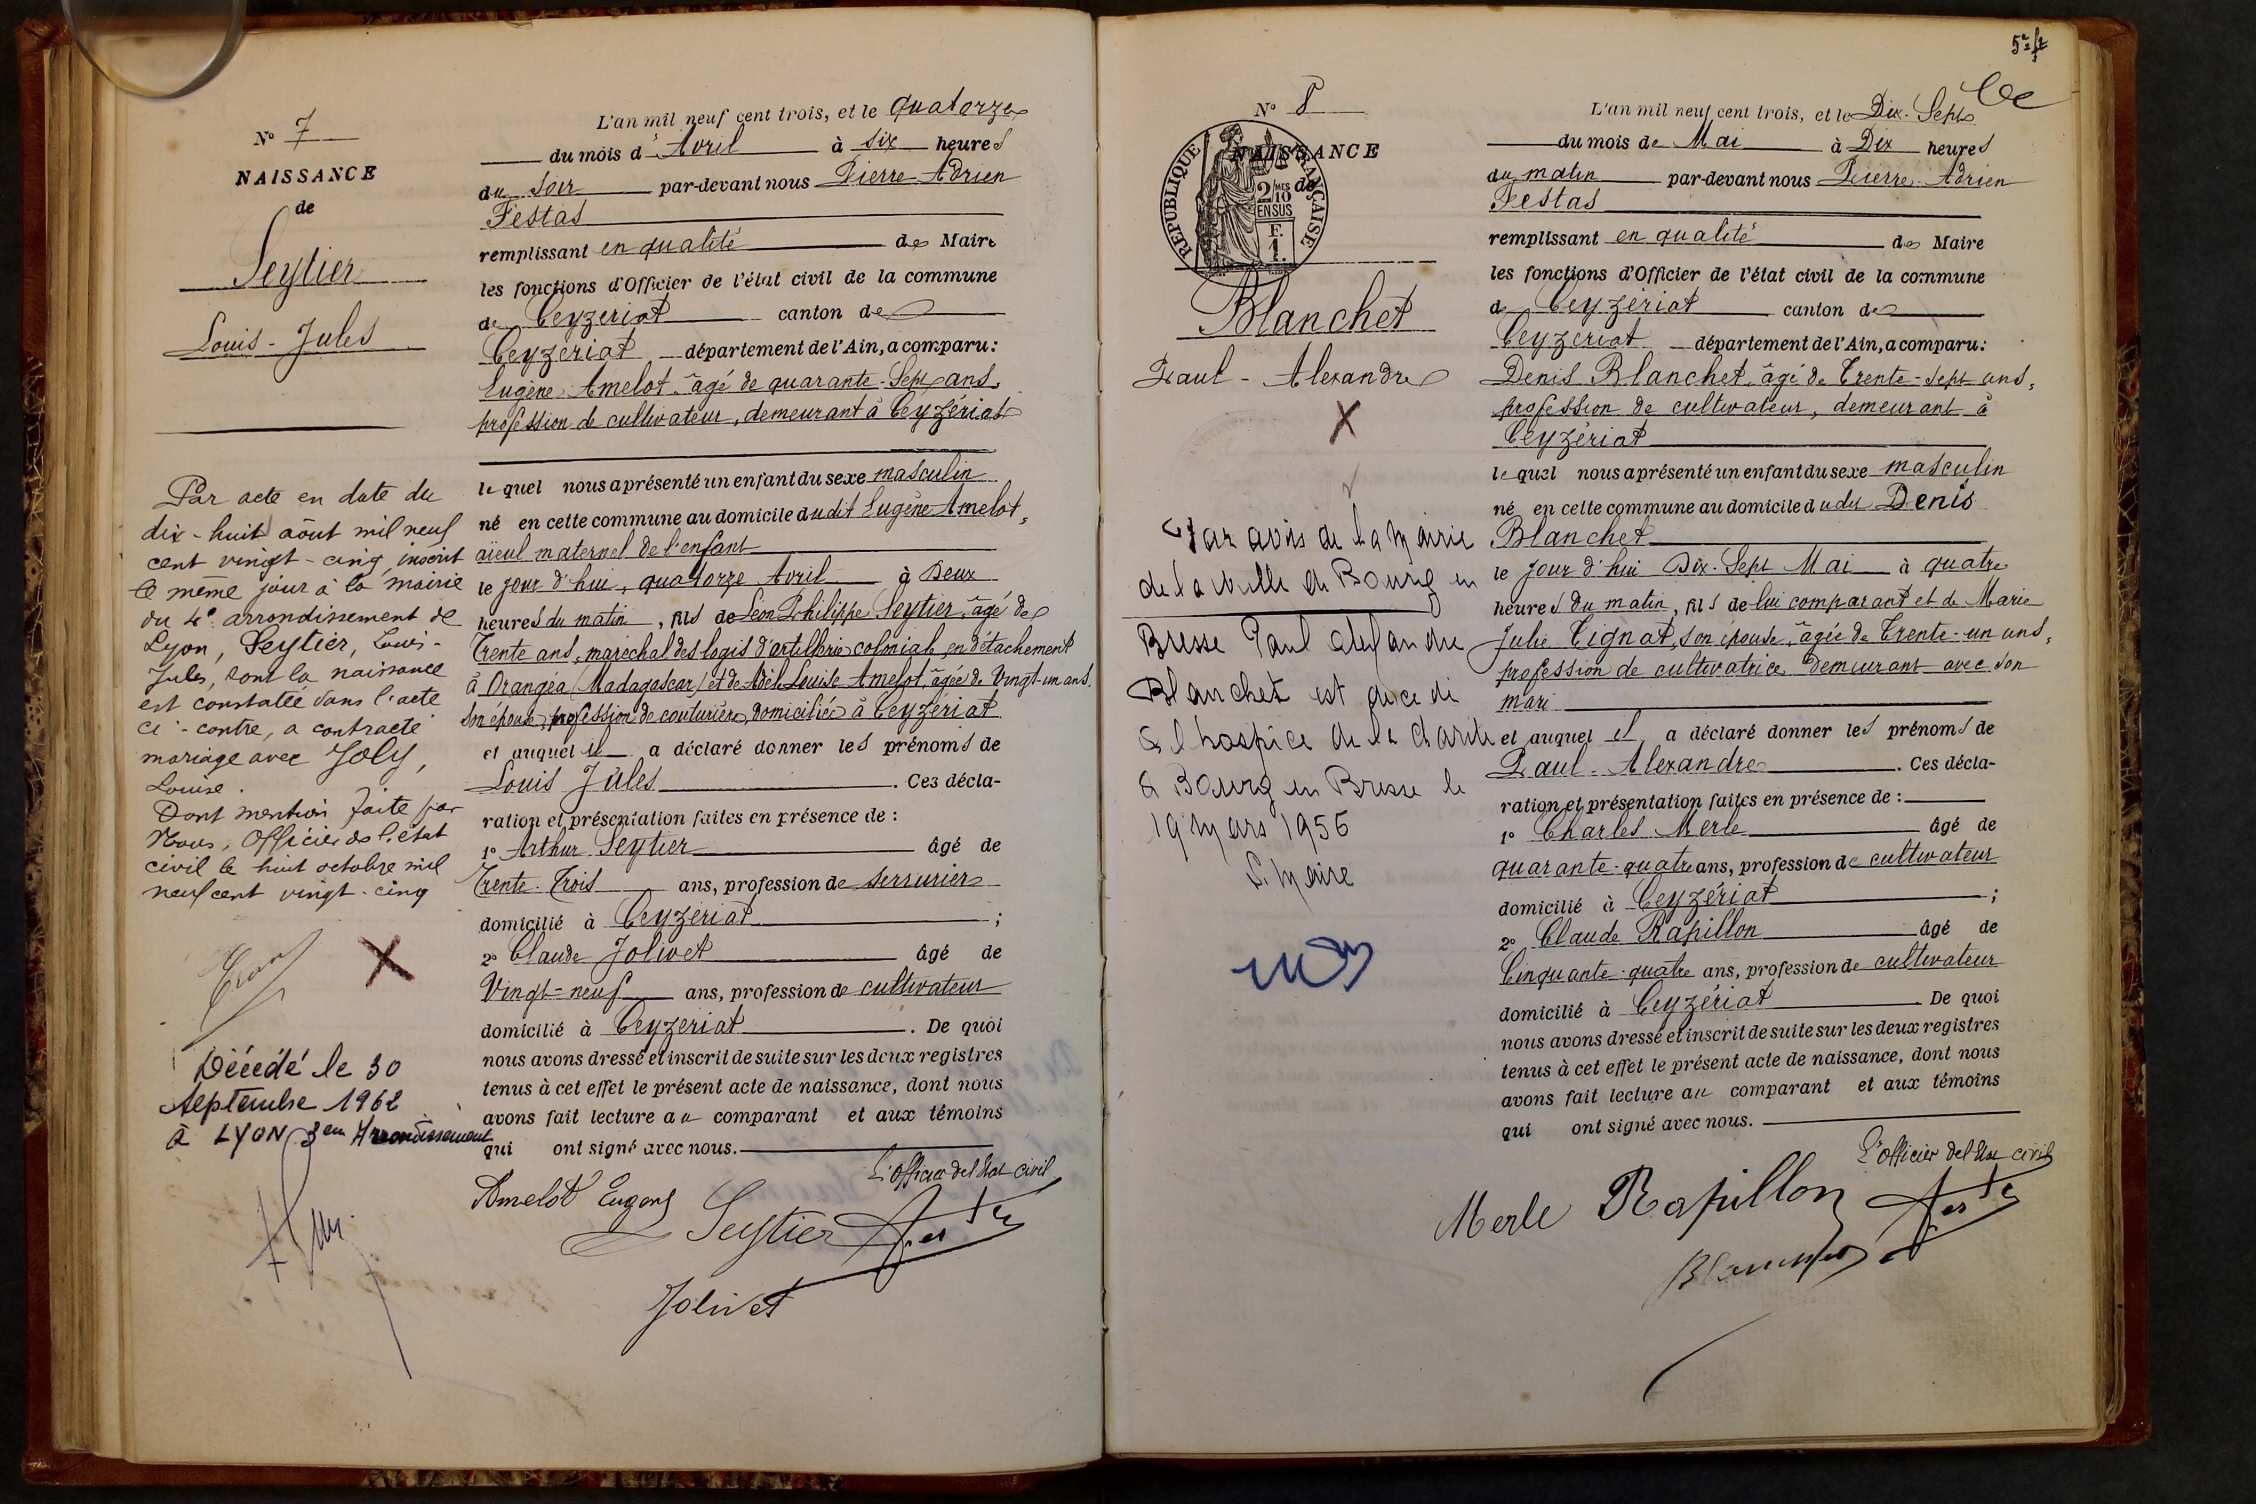 N° 7
NAISSANCE
de
Seytier
Louis-Jules
Par acte en date du
dix-huit août mil neuf
cent vingt-cinq inscrit
le même jour à la mairie
du 4e arrondissement de
Lyon, Seytier, Louis-
Jules, dont la naissance
est constatée dans l'acte
ci-contre, a contracté
mariage avec Joly,
Louise.
Dont mention faite par
Nous, Officier de l'état
civil le huit octobre mil
neuf cent vingt-cinq
Décédé le 30
Septembre 1962
à LYON 3em Arrondissement
L'an mil neuf cent trois, et le quatorze
du mois d'Avril à six heures
du soir par-devant nous Pierre Adrien
Festas
remplissant en qualité de Maire
les fonctions d'Officier de l'état civil de la commune
de Ceyzériat canton de
Ceyzériat département de l'Ain, a comparu:
Eugène Amelot âgé de quarante-Sept ans,
profession de cultivateur, demeurant à Ceyzériat
lequel nous a présenté un enfant du sexe masculin
né en cette commune au domicile dudit Eugène Amelot,
aïeul maternel de l'enfant
le jour d'hui, quatorze Avril à Deux
heures du matin, fils de Léon Philippe Seytier, âgé de
Trente ans, maréchal des logis d'artillerie coloniale en détachement
à Orangéa (Madagascar) et de Adèle Louise Amelot, âgée de Vingt-un ans,
son épouse, profession de couturière, domiciliée à Ceyzériat
et auquel il a déclaré donner les prénoms de
Louis Jules . Ces décla-
ration et présentation faites en présence de :
1° Arthur Seytier âgé de
Trente-Trois ans, profession de serrurier
domicilié à Ceyzériat ;
2° Claude Jolivet âgé de
Vingt-neuf ans, profession de cultivateur
domicilié à Ceyzériat . De quoi
nous avons dressé et inscrit de suite sur les deux registres
tenus à cet effet le présent acte de naissance, dont nous
avons fait lecture au comparant et aux témoins
qui ont signé avec nous.
L'officier de l'Etat civil
Amelot Eugene
Seytier Festas
Jolivet
5e ft
N° 8
NAISSANCE
de
REPUBLIQUE FRANÇAISE
2/10 MES
EN SUS
F.
1.
Blanchet
Paul-Alexandre
Par avis de la Mairie
de la ville de Bourg en
Bresse Paul Alexandre
Blanchet est décédé
à l'hospice de la charité
à Bourg en Bresse le
19 Mars 1956
L. Maire
L'an mil neuf cent trois, et le Dix-Sept
du mois de Mai à Dix heures
du matin par-devant nous Pierre Adrien
Festas
remplissant en qualité de Maire
les fonctions d'Officier de l'état civil de la commune
de Ceyzériat canton de
Ceyzériat département de l'Ain, a comparu:
Denis Blanchet, âgé de Trente-sept ans,
profession de cultivateur, demeurant à
Ceyzériat
lequel nous a présenté un enfant du sexe masculin
né en cette commune au domicile dudit Denis
Blanchet
le jour d'hui Dix-Sept Mai à quatre
heures du matin, fils de lui comparant et de Marie
Julie Tignat, son épouse, âgée de Trente-un ans,
profession de cultivatrice demeurant avec son
mari
et auquel il a déclaré donner les prénoms de
Paul-Alexandre . Ces décla-
ration et présentation faites en présence de :
1° Charles Merle âgé de
quarante-quatre ans, profession de cultivateur
domicilié à Ceyzériat ;
2° Claude Rapillon âgé de
Cinquante-quatre ans, profession de cultivateur
domicilié à Ceyzériat . De quoi
nous avons dressé et inscrit de suite sur les deux registres
tenus à cet effet le présent acte de naissance, dont nous
avons fait lecture au comparant et aux témoins
qui ont signé avec nous.
L'officier de l'Etat civil
Merle Rapillon Festas
Blanchet